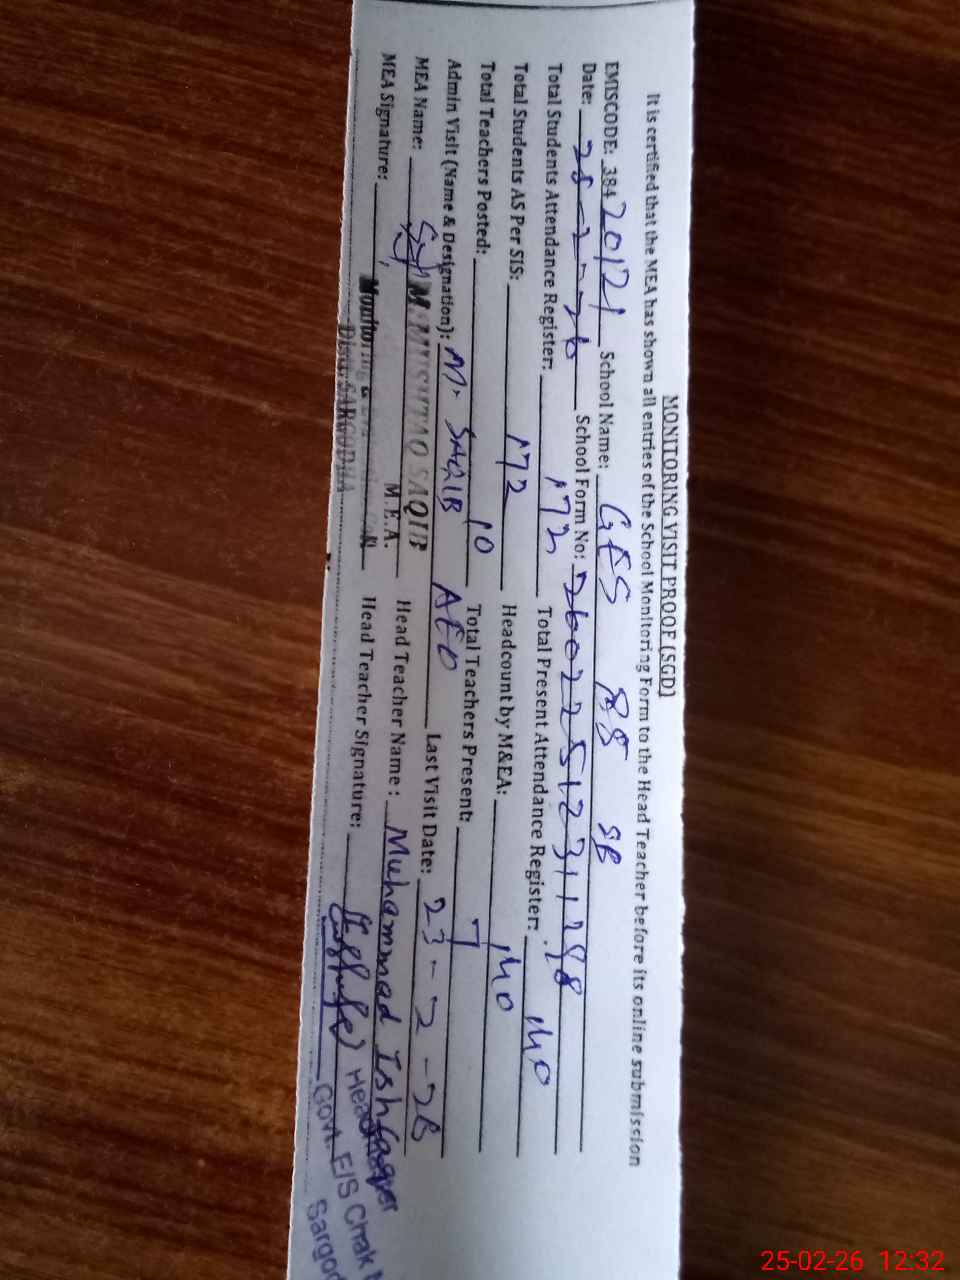 MONITORING VISIT PROOF (SGD)
It is certified that the MEA has shown all entries of the School Monitoring Form to the Head Teacher before its online submission
EMISCODE: 38420121 School Name: GES 88 SB
Date: 25-2-26 School Form No: 26022512311298
Total Students Attendance Register: 172 Total Present Attendance Register: 140
Total Students AS Per SIS: 172 Headcount by M&EA: 140
Total Teachers Posted: 10 Total Teachers Present: 7
Admin Visit (Name & Designation): M. SAQIB AEO Last Visit Date: 23-2-26
MEA Name: M. MUSHTAQ SAQIB Head Teacher Name: Muhammad Ishfaq
M.E.A.
MEA Signature: Monitoring Head Teacher Signature:
Distt. SARGODHA
Govt. E/S Chak
25-02-26 12:32